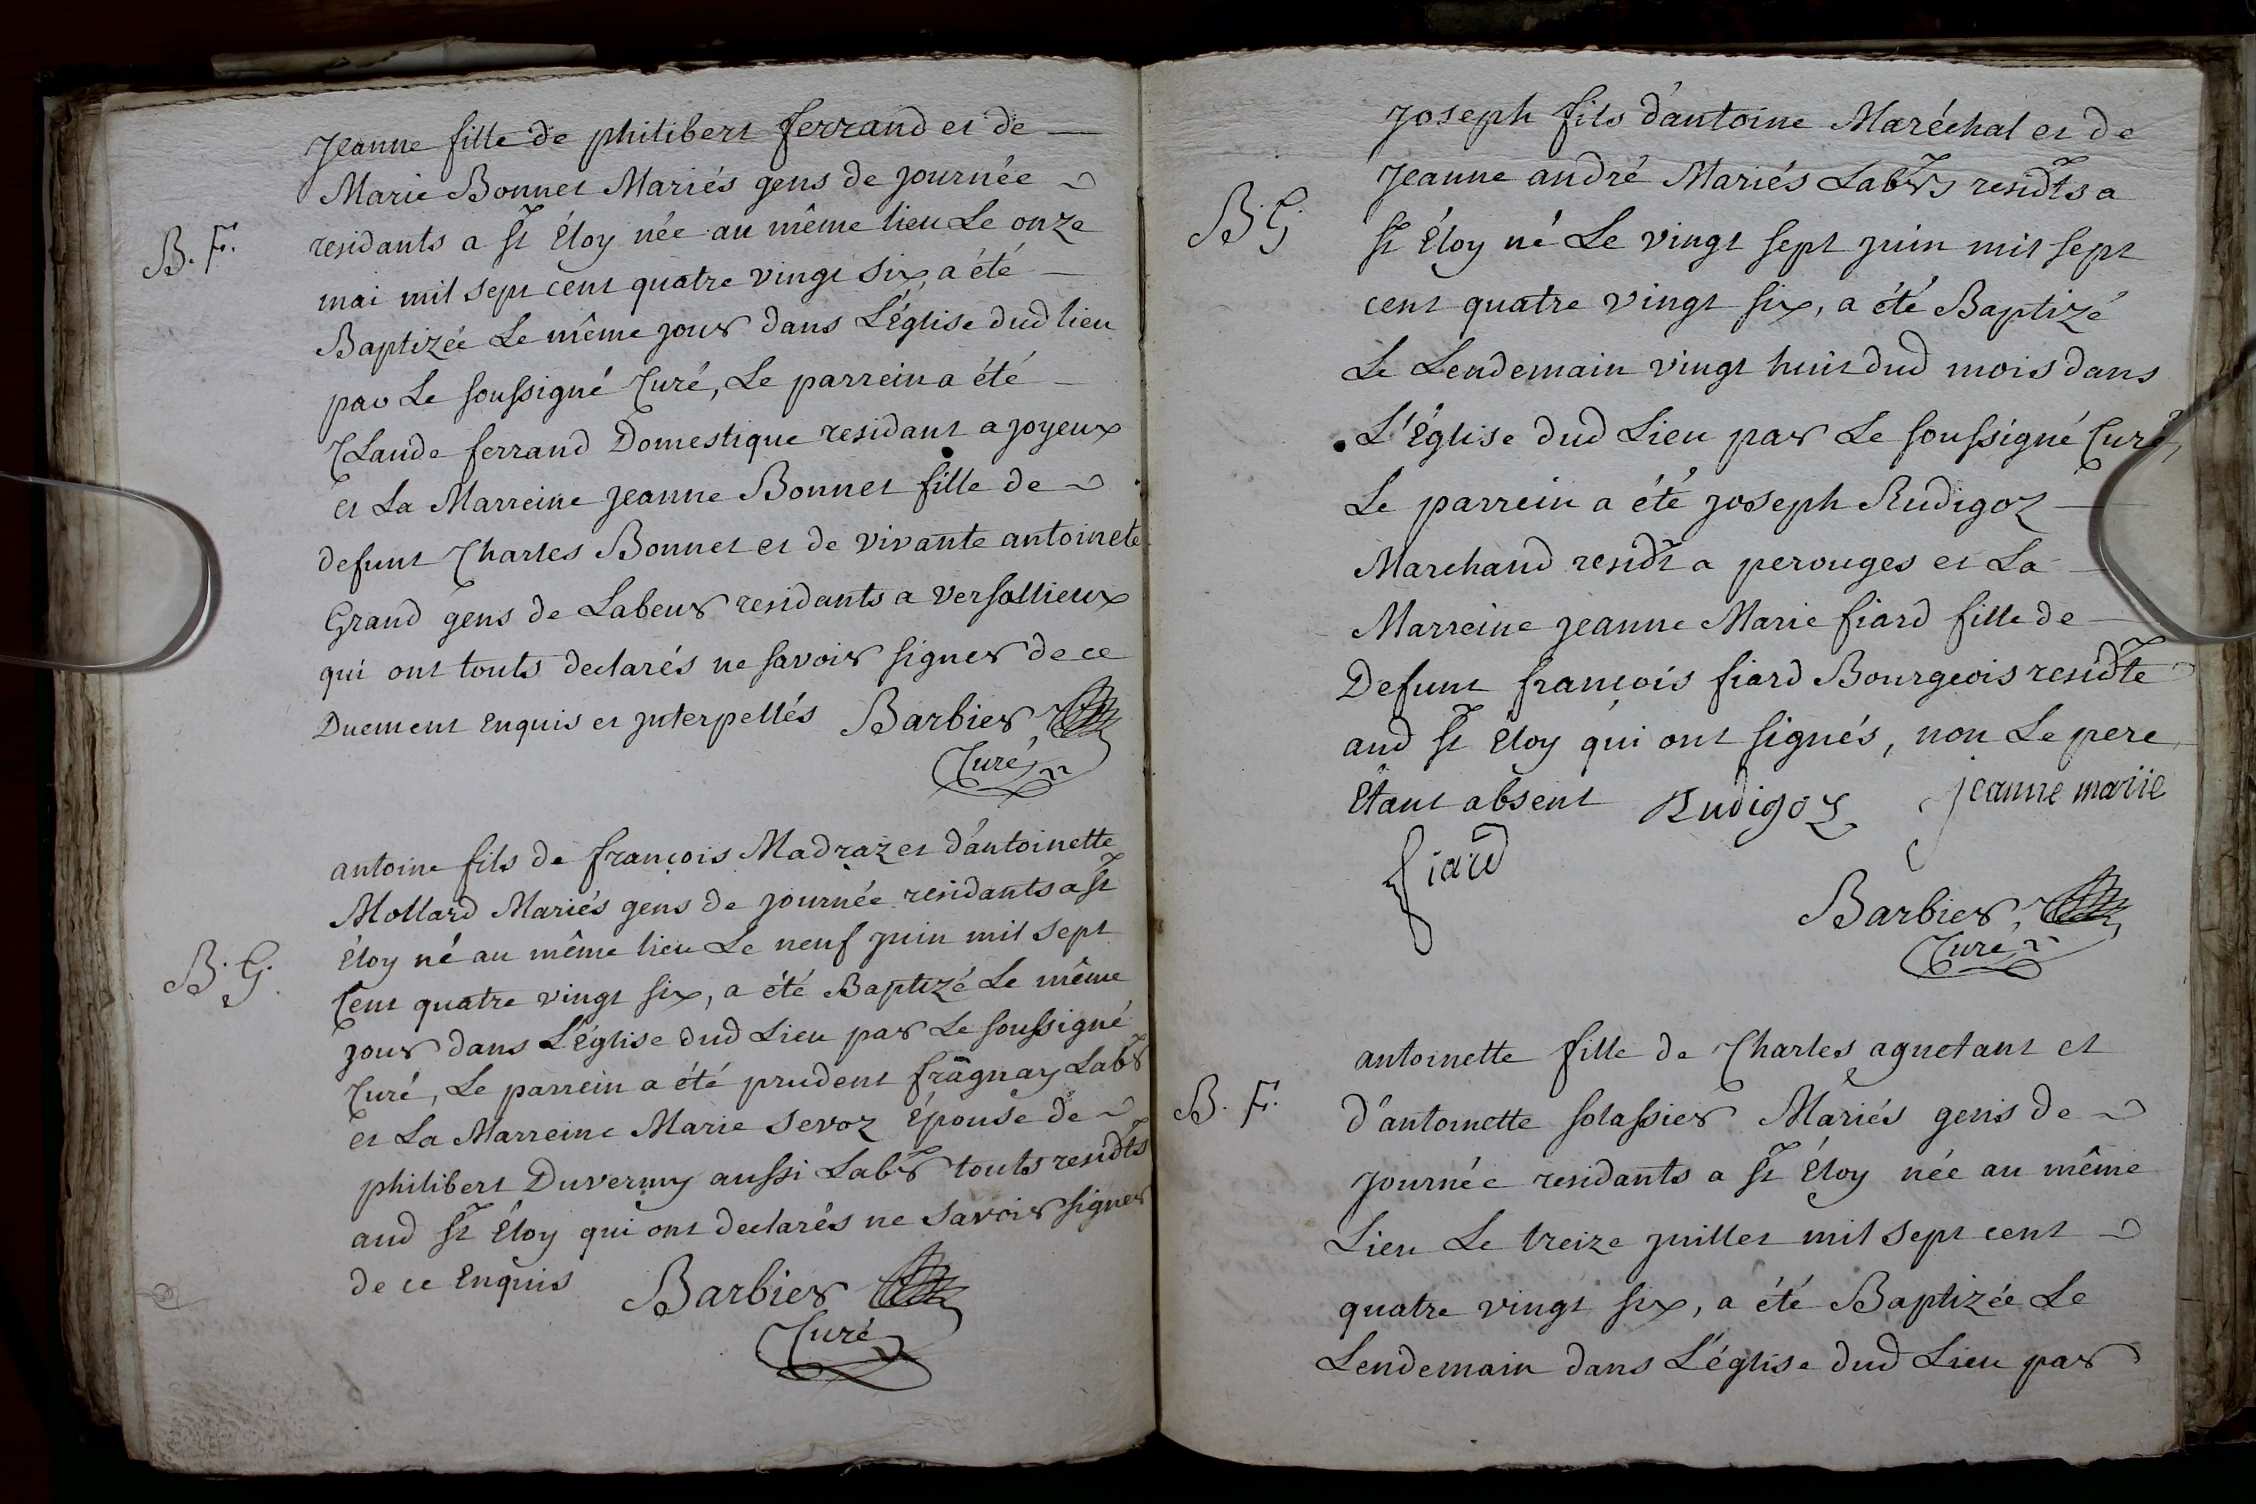 Jeanne fille de philibert ferrand et de
Marie Bonnet Mariés gens de journée
B. F.
residants a St Éloy née au même lieu Le onze
mai mil sept cent quatre vingt six, a été
Baptizée Le même jour dans L'Église dud lieu
par Le soussigné Curé, Le parrein a été
Claude ferrand Domestique residant a joyeux
et La Marreine jeanne Bonnet fille de
defunt Charles Bonnet et de vivante antoinete
Grand gens de Labeur residants a versallieux
qui ont touts declarés ne savoir signer de ce
Duement enquis et interpellés Barbier
Curé
antoine fils de françois Madraz et d'antoinette
Mollard Mariés gens de journée residants a St
B. G.
Éloy né au même lieu Le neuf juin mil sept
Cent quatre vingt six, a été Baptizé Le même
jour dans L'Église dud Lieu par Le soussigné
Curé, Le parrein a été prudent fragnay Labr
et La Marreine Marie Sevoz Épouse de
philibert Duverny aussi Labr touts residts
aud St Éloy qui ont declarés ne savoir signer
de ce Enquis Barbier
Curé
Joseph fils d'antoine Maréchal et de
Jeanne andré Mariés Labrs residts a
B. G
St Éloy né Le vingt sept juin mil sept
cent quatre vingt six, a été Baptizé
Le Lendemain vingt huit dud mois dans
L'Église dud Lieu par Le soussigné Curé,
Le parrein a été joseph Rudigoz
Marchand residt a perouges et La
Marreine jeanne Marie fiard fille de
Defunt françois fiard Bourgeois residte
aud St Éloy qui ont signés, non Le pere
Étant absent Rudigoz jeanne mariie
fiard
Barbier
Curé
antoinette fille de Charles agnetant et
B. F.
d'antoinette solassier Mariés gens de
journée residants a St Éloy née au même
Lieu Le treize juillet mil sept cent
quatre vingt six, a été Baptizée Le
Lendemain dans L'église dud Lieu par